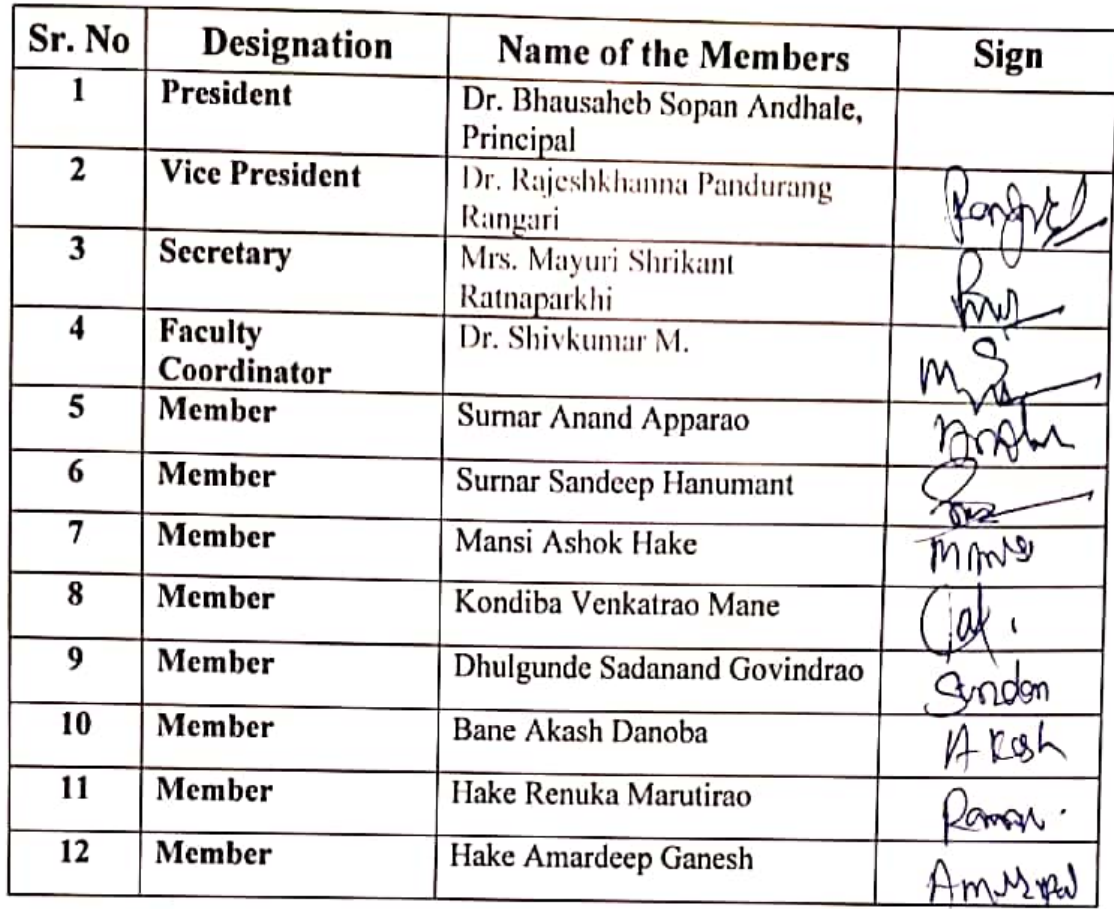 Sr. No Designation Name of the Members Sign
1 President Dr. Bhausaheb Sopan Andhale,
Principal
2 Vice President Dr. Rajeshkhanna Pandurang
Rangari
3 Secretary Mrs. Mayuri Shrikant
Ratnaparkhi
4 Faculty Dr. Shivkumar M.
Coordinator
5 Member Surnar Anand Apparao
6 Member Surnar Sandeep Hanumant
7 Member Mansi Ashok Hake
8 Member Kondiba Venkatrao Mane
9 Member Dhulgunde Sadanand Govindrao
10 Member Bane Akash Danoba Akash
11 Member Hake Renuka Marutirao
12 Member Hake Amardeep Ganesh